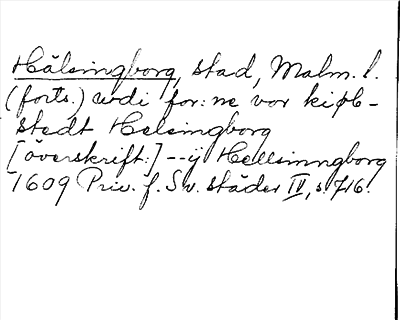 Hälsingborg, stad, Malm. l.
(forts.) udi for: ne vor kiøb-
stedt Helsingborg
[överskrift:] -- ÿ Hellsinngborg
1609 Priv. f. Sv. städer IV, s. 716.